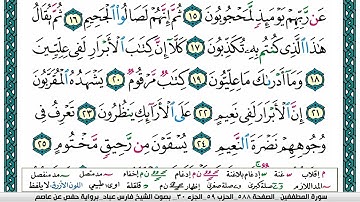 عَن رَّبِّهِمْ يَوْمَئِذٍ لَّمَحْجُوبُونَ ١٥ ثُمَّ إِنَّهُمْ لَصَالُوا۟ ٱلْجَحِيمِ ١٦ ثُمَّ يُقَالُ
هَٰذَا ٱلَّذِى كُنتُم بِهِۦ تُكَذِّبُونَ ١٧ كَلَّآ إِنَّ كِتَٰبَ ٱلْأَبْرَارِ لَفِى عِلِّيِّينَ
١٨ وَمَآ أَدْرَىٰكَ مَا عِلِّيُّونَ ١٩ كِتَٰبٌ مَّرْقُومٌ ٢٠ يَشْهَدُهُ ٱلْمُقَرَّبُونَ
٢١ إِنَّ ٱلْأَبْرَارَ لَفِى نَعِيمٍ ٢٢ عَلَى ٱلْأَرَآئِكِ يَنظُرُونَ ٢٣ تَعْرِفُ فِى
وُجُوهِهِمْ نَضْرَةَ ٱلنَّعِيمِ ٢٤ يُسْقَوْنَ مِن رَّحِيقٍ مَّخْتُومٍ ٢٥
سورة المطففين الصفحة ٥٨٨ الحزب ٥٩ الجزء ٣٠ بصوت الشيخ فارس عباد برواية حفص عن عاصم